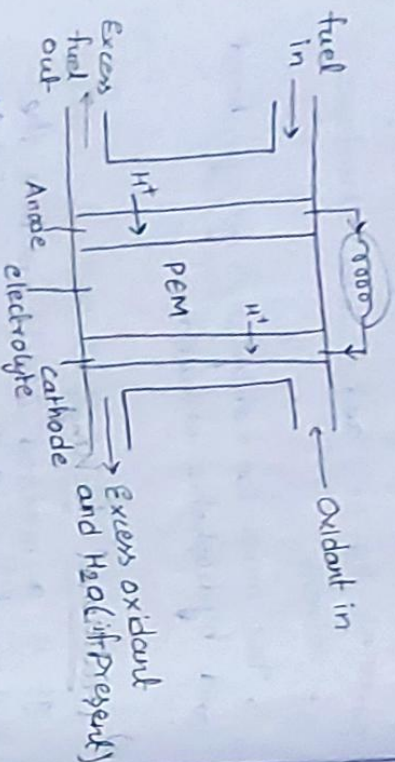 fuel
in
Oxidant in
H⁺
PEM
H⁺
Excess
fuel
out
Excess oxidant
and H₂O(if present)
Anode
electrolyte
cathode